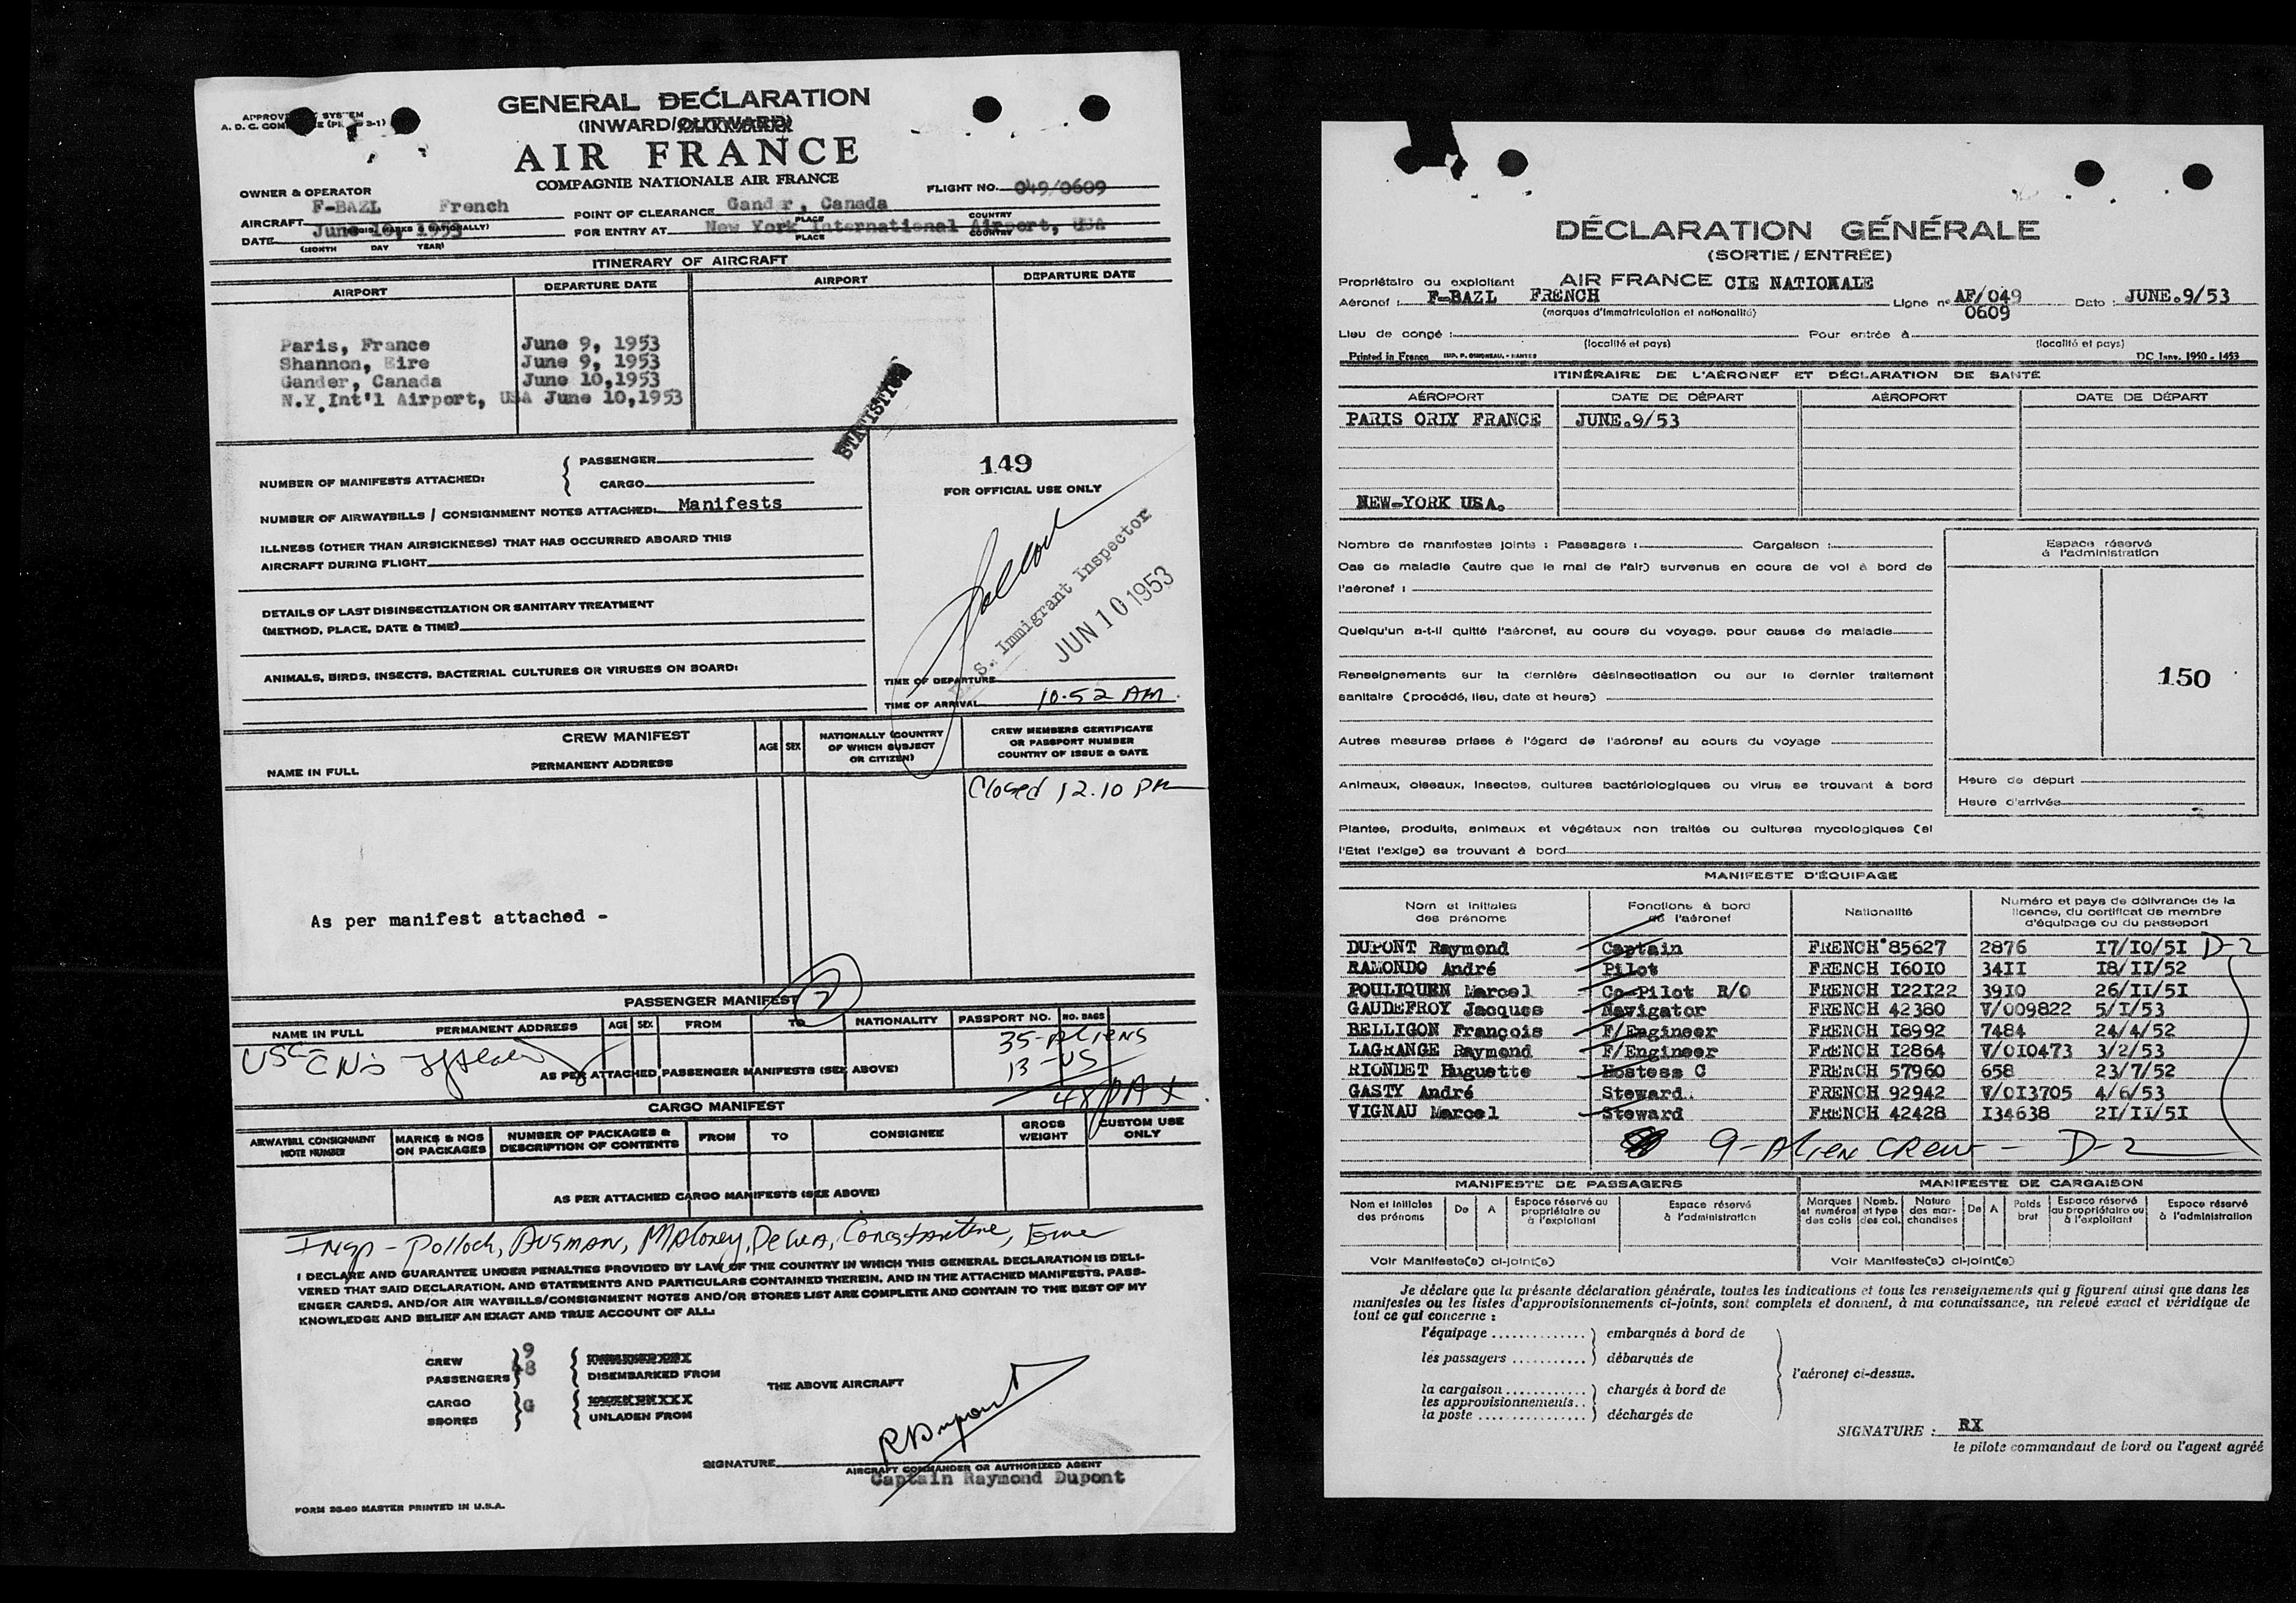 APPROV SYSTEM
A. D. C. COM
GENERAL DECLARATION
(INWARD/OUTWARD)
AIR FRANCE
COMPAGNIE NATIONALE AIR FRANCE
OWNER & OPERATOR
FLIGHT NO. 049/0609
AIRCRAFT F-BAZL French
(REGIS. MARKS & NATIONALLY)
POINT OF CLEARANCE Gander, Canada
PLACE COUNTRY
DATE June 10, 1953
(MONTH DAY YEAR)
FOR ENTRY AT New York International Airport, USA
PLACE COUNTRY
ITINERARY OF AIRCRAFT
AIRPORT DEPARTURE DATE AIRPORT DEPARTURE DATE
Paris, France June 9, 1953
Shannon, Eire June 9, 1953
Gander, Canada June 10,1953
N.Y.Int'l Airport, USA June 10,1953
STATISTICS
NUMBER OF MANIFESTS ATTACHED:
PASSENGER
CARGO
NUMBER OF AIRWAYBILLS / CONSIGNMENT NOTES ATTACHED: Manifests
ILLNESS (OTHER THAN AIRSICKNESS) THAT HAS OCCURRED ABOARD THIS
AIRCRAFT DURING FLIGHT
DETAILS OF LAST DISINSECTIZATION OR SANITARY TREATMENT
(METHOD, PLACE, DATE & TIME)
ANIMALS, BIRDS, INSECTS, BACTERIAL CULTURES OR VIRUSES ON BOARD:
149
FOR OFFICIAL USE ONLY
Pollock
S. Immigrant Inspector
JUN 10 1953
TIME OF DEPARTURE
TIME OF ARRIVAL 10.52 AM.
CREW MANIFEST
NAME IN FULL PERMANENT ADDRESS
AGE SEX
NATIONALLY (COUNTRY
OF WHICH SUBJECT
OR CITIZEN)
CREW MEMBERS CERTIFICATE
OR PASSPORT NUMBER
COUNTRY OF ISSUE & DATE
Closed 12.10 PM
As per manifest attached -
PASSENGER MANIFEST
NAME IN FULL PERMANENT ADDRESS AGE SEX FROM TO NATIONALITY PASSPORT NO. NO. BAGS
35-Aliens
13-US
48 PAX
AS PER ATTACHED PASSENGER MANIFESTS (SEE ABOVE)
CARGO MANIFEST
AIRWAYBILL CONSIGNMENT
NOTE NUMBER
MARKS & NOS
ON PACKAGES
NUMBER OF PACKAGES &
DESCRIPTION OF CONTENTS
FROM TO CONSIGNEE
GROSS
WEIGHT
CUSTOM USE
ONLY
AS PER ATTACHED CARGO MANIFESTS (SEE ABOVE)
Insp - Pollock, Ausman, Maloney, Constantine,
I DECLARE AND GUARANTEE UNDER PENALTIES PROVIDED BY LAW OF THE COUNTRY IN WHICH THIS GENERAL DECLARATION IS DELI-
VERED THAT SAID DECLARATION, AND STATEMENTS AND PARTICULARS CONTAINED THEREIN, AND IN THE ATTACHED MANIFESTS, PASS-
ENGER CARDS, AND/OR AIR WAYBILLS/CONSIGNMENT NOTES AND/OR STORES LIST ARE COMPLETE AND CONTAIN TO THE BEST OF MY
KNOWLEDGE AND BELIEF AN EXACT AND TRUE ACCOUNT OF ALL:
CREW 9
PASSENGERS 48
DISEMBARKED FROM
THE ABOVE AIRCRAFT
CARGO G
SRORES
UNLADEN FROM
RDupont
SIGNATURE
AIRCRAFT COMMANDER OR AUTHORIZED AGENT
Captain Raymond Dupont
FORM 26-60 MASTER PRINTED IN U.S.A.
DÉCLARATION GÉNÉRALE
(SORTIE/ENTRÉE)
Propriétaire ou exploitant AIR FRANCE CIE NATIONALE
Aéronef : F-BAZL FRENCH Ligne nº AF/049 Date : JUNE.9/53
0609
(marques d'immatriculation et nationalité)
Lieu de congé : Pour entrée à
(localité et pays) (localité et pays)
Printed in France DC Janv. 1950 - 1453
ITINÉRAIRE DE L'AÉRONEF ET DÉCLARATION DE SANTÉ
AÉROPORT DATE DE DÉPART AÉROPORT DATE DE DÉPART
PARIS ORLY FRANCE JUNE.9/53
NEW-YORK USA.
Nombre de manifestes joints : Passagers : Cargaison :
Cas de maladie (autre que le mal de l'air) survenus en cours de vol à bord de
l'aéronef :
Quelqu'un a-t-il quitté l'aéronef, au cours du voyage, pour cause de maladie
Renseignements sur la dernière désinsectisation ou sur le dernier traitement
sanitaire (procédé, lieu, date et heure)
Autres mesures prises à l'égard de l'aéronef au cours du voyage
Animaux, oiseaux, insectes, cultures bactériologiques ou virus se trouvant à bord
Plantes, produits, animaux et végétaux non traités ou cultures mycologiques (si
l'Etat l'exige) se trouvant à bord
Espace réservé
à l'administration
150
Heure de départ
Heure d'arrivée
MANIFESTE D'ÉQUIPAGE
Nom et initiales
des prénoms
Fonctions à bord
de l'aéronef
Nationalité
Numéro et pays de délivrance de la
licence, du certificat de membre
d'équipage ou du passeport
DUPONT Raymond Captain FRENCH 85627 2876 17/10/51 D-2
RAMONDO André Pilot FRENCH I6010 34II I8/II/52
POULIQUEN Marcel Co-Pilot R/O FRENCH I22I22 39I0 26/II/5I
GAUDEFROY Jacques Navigator FRENCH 42380 V/009822 5/I/53
BELLIGON François F/Engineer FRENCH I8992 7484 24/4/52
LAGRANGE Raymond F/Engineer FRENCH I2864 V/0I0473 3/2/53
RIONDET Huguette Hostess C FRENCH 57960 658 23/7/52
GASTY André Steward. FRENCH 92942 V/0I3705 4/6/53
VIGNAU Marcel Steward FRENCH 42428 I34638 2I/II/5I
9-Alien Crew - D-2
MANIFESTE DE PASSAGERS MANIFESTE DE CARGAISON
Nom et initiales
des prénoms
De A
Espace réservé au
propriétaire ou
à l'exploitant
Espace réservé
à l'administration
Marques
et numéros
des colis
Nomb.
et type
des col.
Nature
des mar-
chandises
De A
Poids
brut
Espace réservé
au propriétaire ou
à l'exploitant
Espace réservé
à l'administration
Voir Manifeste(s) ci-joint(s) Voir Manifeste(s) ci-joint(s)
Je déclare que la présente déclaration générale, toutes les indications et tous les renseignements qui y figurent ainsi que dans les
manifestes ou les listes d'approvisionnements ci-joints, sont complets et donnent, à ma connaissance, un relevé exact et véridique de
tout ce qui concerne :
l'équipage embarqués à bord de
les passagers débarqués de
l'aéronef ci-dessus.
la cargaison chargés à bord de
les approvisionnements
la poste déchargés de
SIGNATURE : RX
le pilote commandant de bord ou l'agent agréé